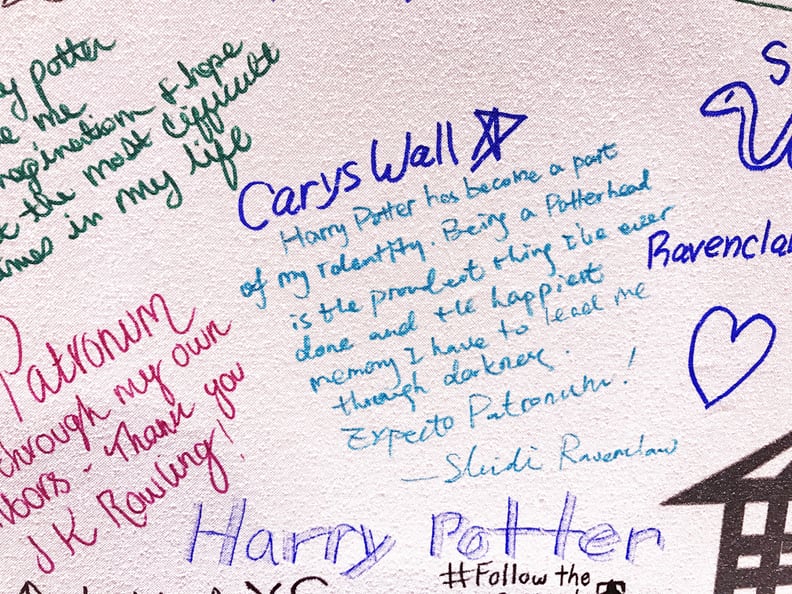 y Potter
me
magination & hope
the most difficult
times in my life
Carys Wall
Harry Potter has become a part
of my identity. Being a Potterhead
is the proudest thing i've ever
done and the happiest
memory I have to lead me
through darkness.
Expecto Patronum!
— Ravenclaw
S
Ravencla
Patronum
through my own
Thank you
JK Rowling!
Harry Potter
#Follow the